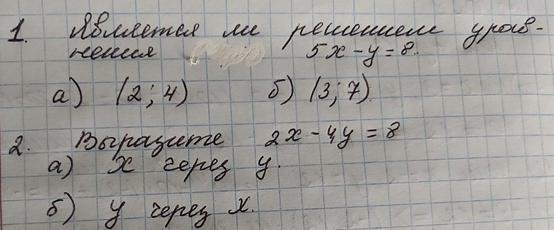 1. Является ли решением урав-
нения 5x-y=8.
а) (2; 4) б) (3; 7)
2. Выразите 2x-4y=8
а) x через y.
б) y через x.